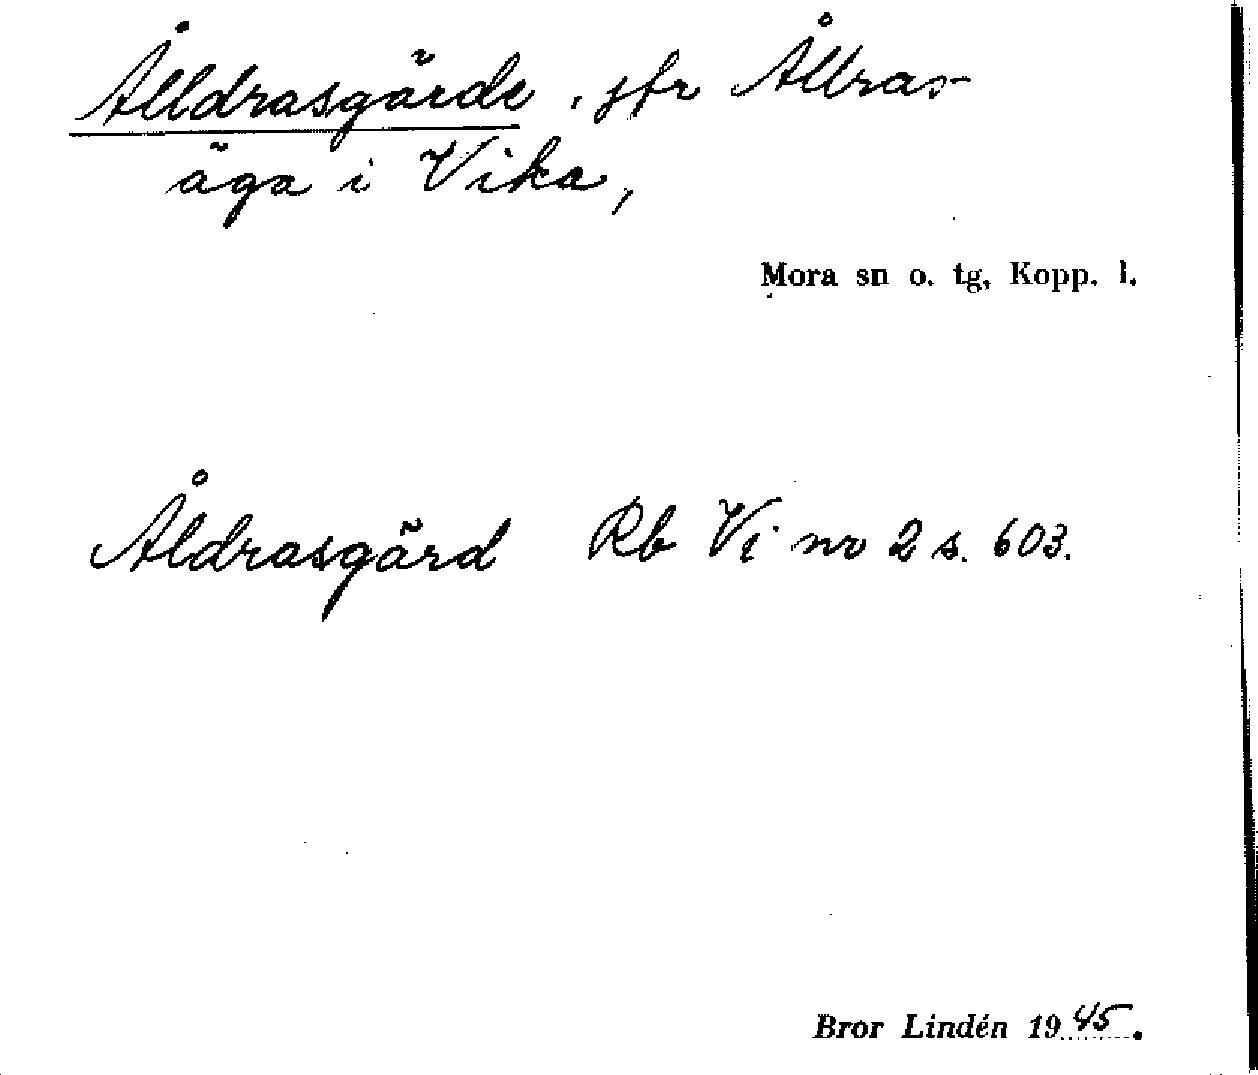 Ålldrasgärde, jfr Ållras-
äga i Vika,
Mora sn o. tg, Kopp. l.
Åldrasgärd Rb Vi nr 2 s. 603.
Bror Lindén 1945.